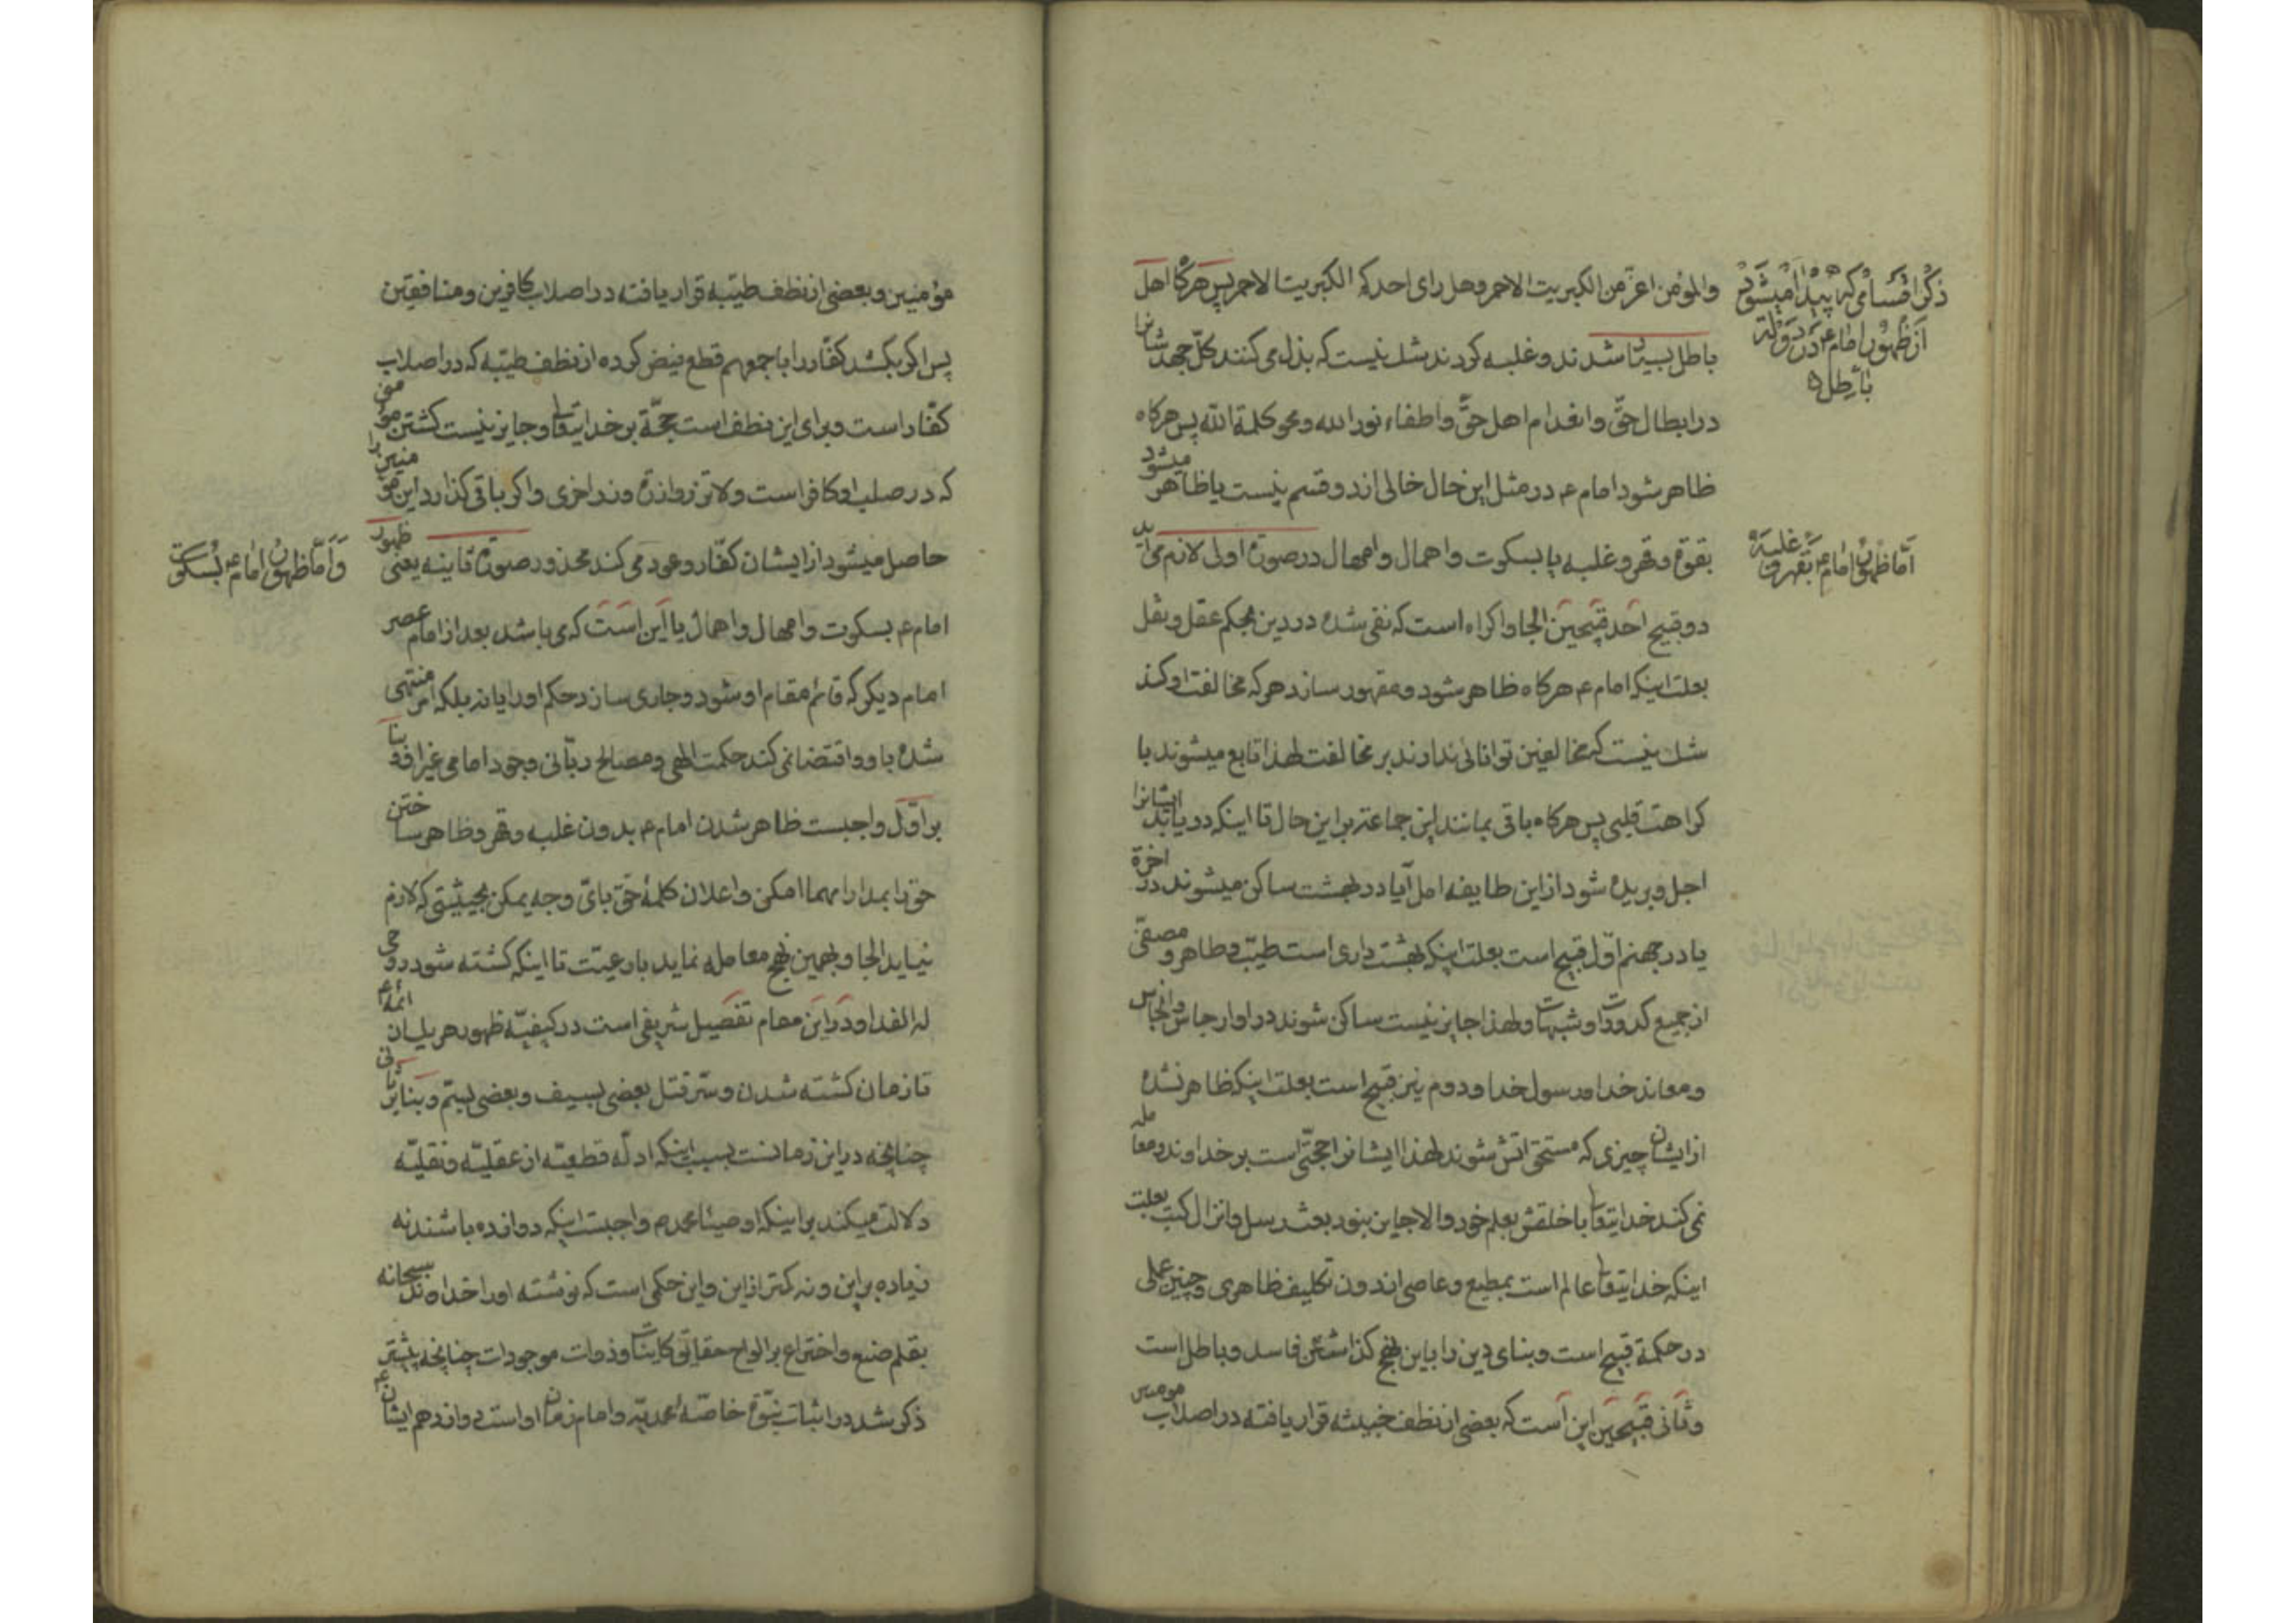 ذکر اقسامی که پیدا میشود
از ظهور امام ع در دولة
باطل
والمؤمن اعزّ من الکبریت الاحمر وهل رای احدکم الکبریت الاحمر پس هرکاه اهل
باطل بسیار شدند و غلبه کردند شك نیست که بذل می کنند کلّ جهد شانرا
در ابطال حقّ و انعدام اهل حقّ و اطفاء نور الله و محو کلمة الله پس هرکاه
ظاهر شود امام ع در مثل این حال خالی از دو قسم نیست یا ظاهر میشود
اما ظهور امام ع بقهر و غلبه
بقوة و قهر و غلبه یا بسکوت و اهمال و امهال در صورة اولی لازم می اید
دو قبیح احد قبیحین الجا و اکراه است که نفی شده در دین بحکم عقل و نقل
بعلت اینکه امام ع هرکاه ظاهر شود و مقهور سازد هر که مخالفت او کند
شك نیست که مخالفین توانائی ندارند بر مخالفت لهذا تابع میشوند با
کراهت قلبی پس هرکاه باقی بمانند این جماعة بر این حال تا اینکه دریابد ایشانرا
اجل و بریده شود از این طایفه امل آیا در بهشت ساکن میشوند در اخرة
یا در جهنم اوّل قبیح است بعلت اینکه بهشت داری است طیّب و طاهر و مصفّی
از جمیع کدورات و شبهات ولهذا جایز نیست ساکن شوند در او ارجاس و انجاس
و معاند خدا و رسول خدا و دوم نیز قبیح است بعلت اینکه ظاهر نشده
از ایشان چیزی که مستحق اتش شوند لهذا ایشانرا حجّتی است بر خداوند و معامله
نمی کند خدایتعالی با خلقش بعلم خود والا جایز نبود بعث رسل و انزال کتب بعلت
اینکه خدایتعالی عالم است بمطیع و عاصی از دون تکلیف ظاهری و چنین عملی
در حکمة قبیح است و بنای دین را باین نهج کذاشتن فاسد و باطل است
و ثانی قبیحین این است که بعضی از نطف خبیثه قرار یافته در اصلاب مومنین
مؤمنین و بعضی از نطف طیّبه قرار یافته در اصلاب کافرین و منافقین
پس اکر بکشد کفّار را باجمعهم قطع فیض کرده از نطف طیّبه که در اصلاب
کفّار است و برای این نطف است حجّة بر خدایتعالی و جایز نیست کشتن مؤمنی
که در صلب او کافر است ولا تزر وازرة وزر اخری و اکر باقی کذارد این مؤمنین را
حاصل میشود از ایشان کفّار و عود می کند محذور صورة ثانیه یعنی ظهور
وَامّا ظهور امام ع بسکوت
امام ع بسکوت و امهال و اهمال یا این است که می باشد بعد از امام عصر
امام دیکر که قائم مقام او شود و جاری سازد حکم او را یا نه بلکه امر منتهی
شده باو و اقتضا نمی کند حکمت الهی و مصالح ربّانی وجود امامی غیر او بنا
بر اوّل واجبست ظاهر شدن امام ع بدون غلبه و قهر و ظاهر ساختن
حق را بمدارا مهما امکن و اعلان کلمۀ حق بایّ وجه یمکن بحیثیتی که لازم
نیاید الجا و بهمین نهج معامله نماید با رعیّت تا اینکه کشته شود روحی
له الفدا و در این مقام تفصیل شریفی است در کیفیّة ظهور هر یك از ائمه ع
تا زمان کشته شدن و سرّ قتل بعضی بسیف و بعضی بسمّ و بنا بر ثانی
چنانچه در این زمانست بسبب اینکه ادلّه قطعیّه از عقلیّه و نقلیّه
دلالت میکند بر اینکه اوصیاء محمد ص واجبست اینکه دوازده باشند نه
زیاده بر این و نه کمتر از این و این حکمی است که نوشته او را خداوند سبحانه
بقلم صنع و اختراع بر الواح حقایق کاینات و ذوات موجودات چنانچه پیشتر
ذکر شد در اثبات نبوّة خاصّه احمدیّه و امام زمان ع او است دوازدهم ایشان